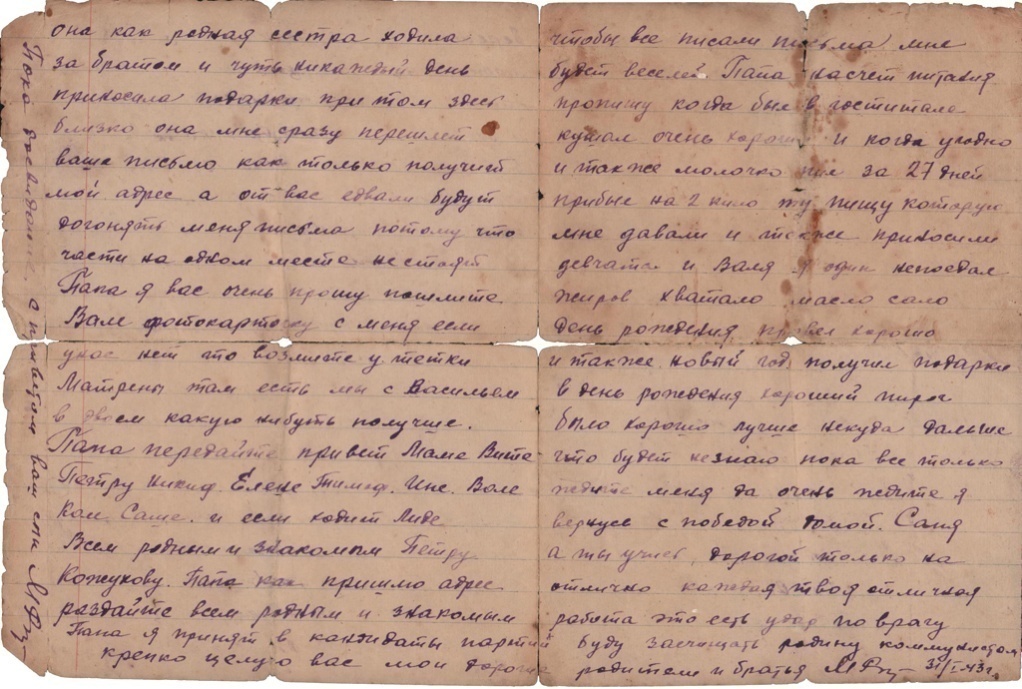 она как родная сестра ходила
за братом и чуть никаждый день
приносила подарки при том здесь
близко она мне сразу перешлет
ваше письмо как только получит
мой адрес а от вас едвали будут
догонять меня письма потому что
части на одном месте не стоят
Папа я вас очень прошу пошлите
Вале фотокарточку с меня если
у вас нет то возмите у тетки
Матрены там есть мы с Васильем
в двоем какую нибуть получше.
Папа передайте привет Маме Вите
Петру Никиф. Елене Тимоф. Ине. Воле
Саше. и если ходит Лиде
Всем родным и знакомым Петру
Кожукову. Папа как пришлю адрес
раздайте всем родным и знакомым
чтобы все писали письма мне
будет веселей Папа насчет питания
пропишу когда был в гостпитале
кушал очень хорошо и когда угодно
и также молочко пил за 27 дней
прибыл на 2 кило ту пищу которую
мне давали и также приносили
девчата и Валя я один непоедал
жиров хватало масло сало
день рождения провел хорошо
и также новый год получил подарки
в день рождения хороший пирог
было хорошо лучше некуда дальше
что будет незнаю пока все только
ждите меня да очень ждите я
вернусь с победой домой. Саня
а ты учись, дорогой только на
отлично каждая твоя отличная
работа это есть удар по врагу
Папа я принят в кандидаты партий буду засчищать родину коммунистом
крепко целую вас мои дорогие родители и братья 31/I-43г.
Пока досвидание. а приветом ваш сын